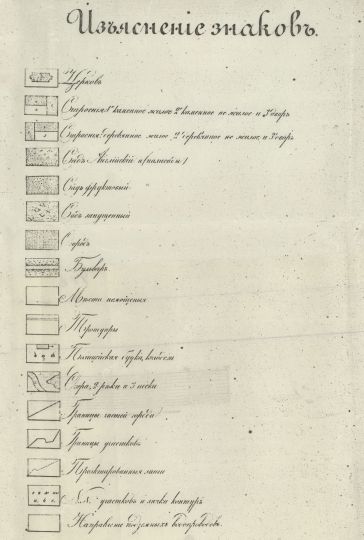 Изъясненіе знаковъ.
Церковь
Строенія: 1 каменное жилое 2 каменное не жилое и 3 дворъ
Строенія: деревянное жилое 2 деревянное не жилое и 3 дворъ
Садъ Англійскій
Садъ фруктовый
Садъ запущенный
Огородъ
Бульваръ
Места
Тротуары
Полицейская будка, колодезь
Озера, 2 реки и 3 пески
Границы частей города
Границы участковъ
Проектированныя линіи
№№ участковъ и контуръ
Направленіе подземныхъ водопроводовъ.